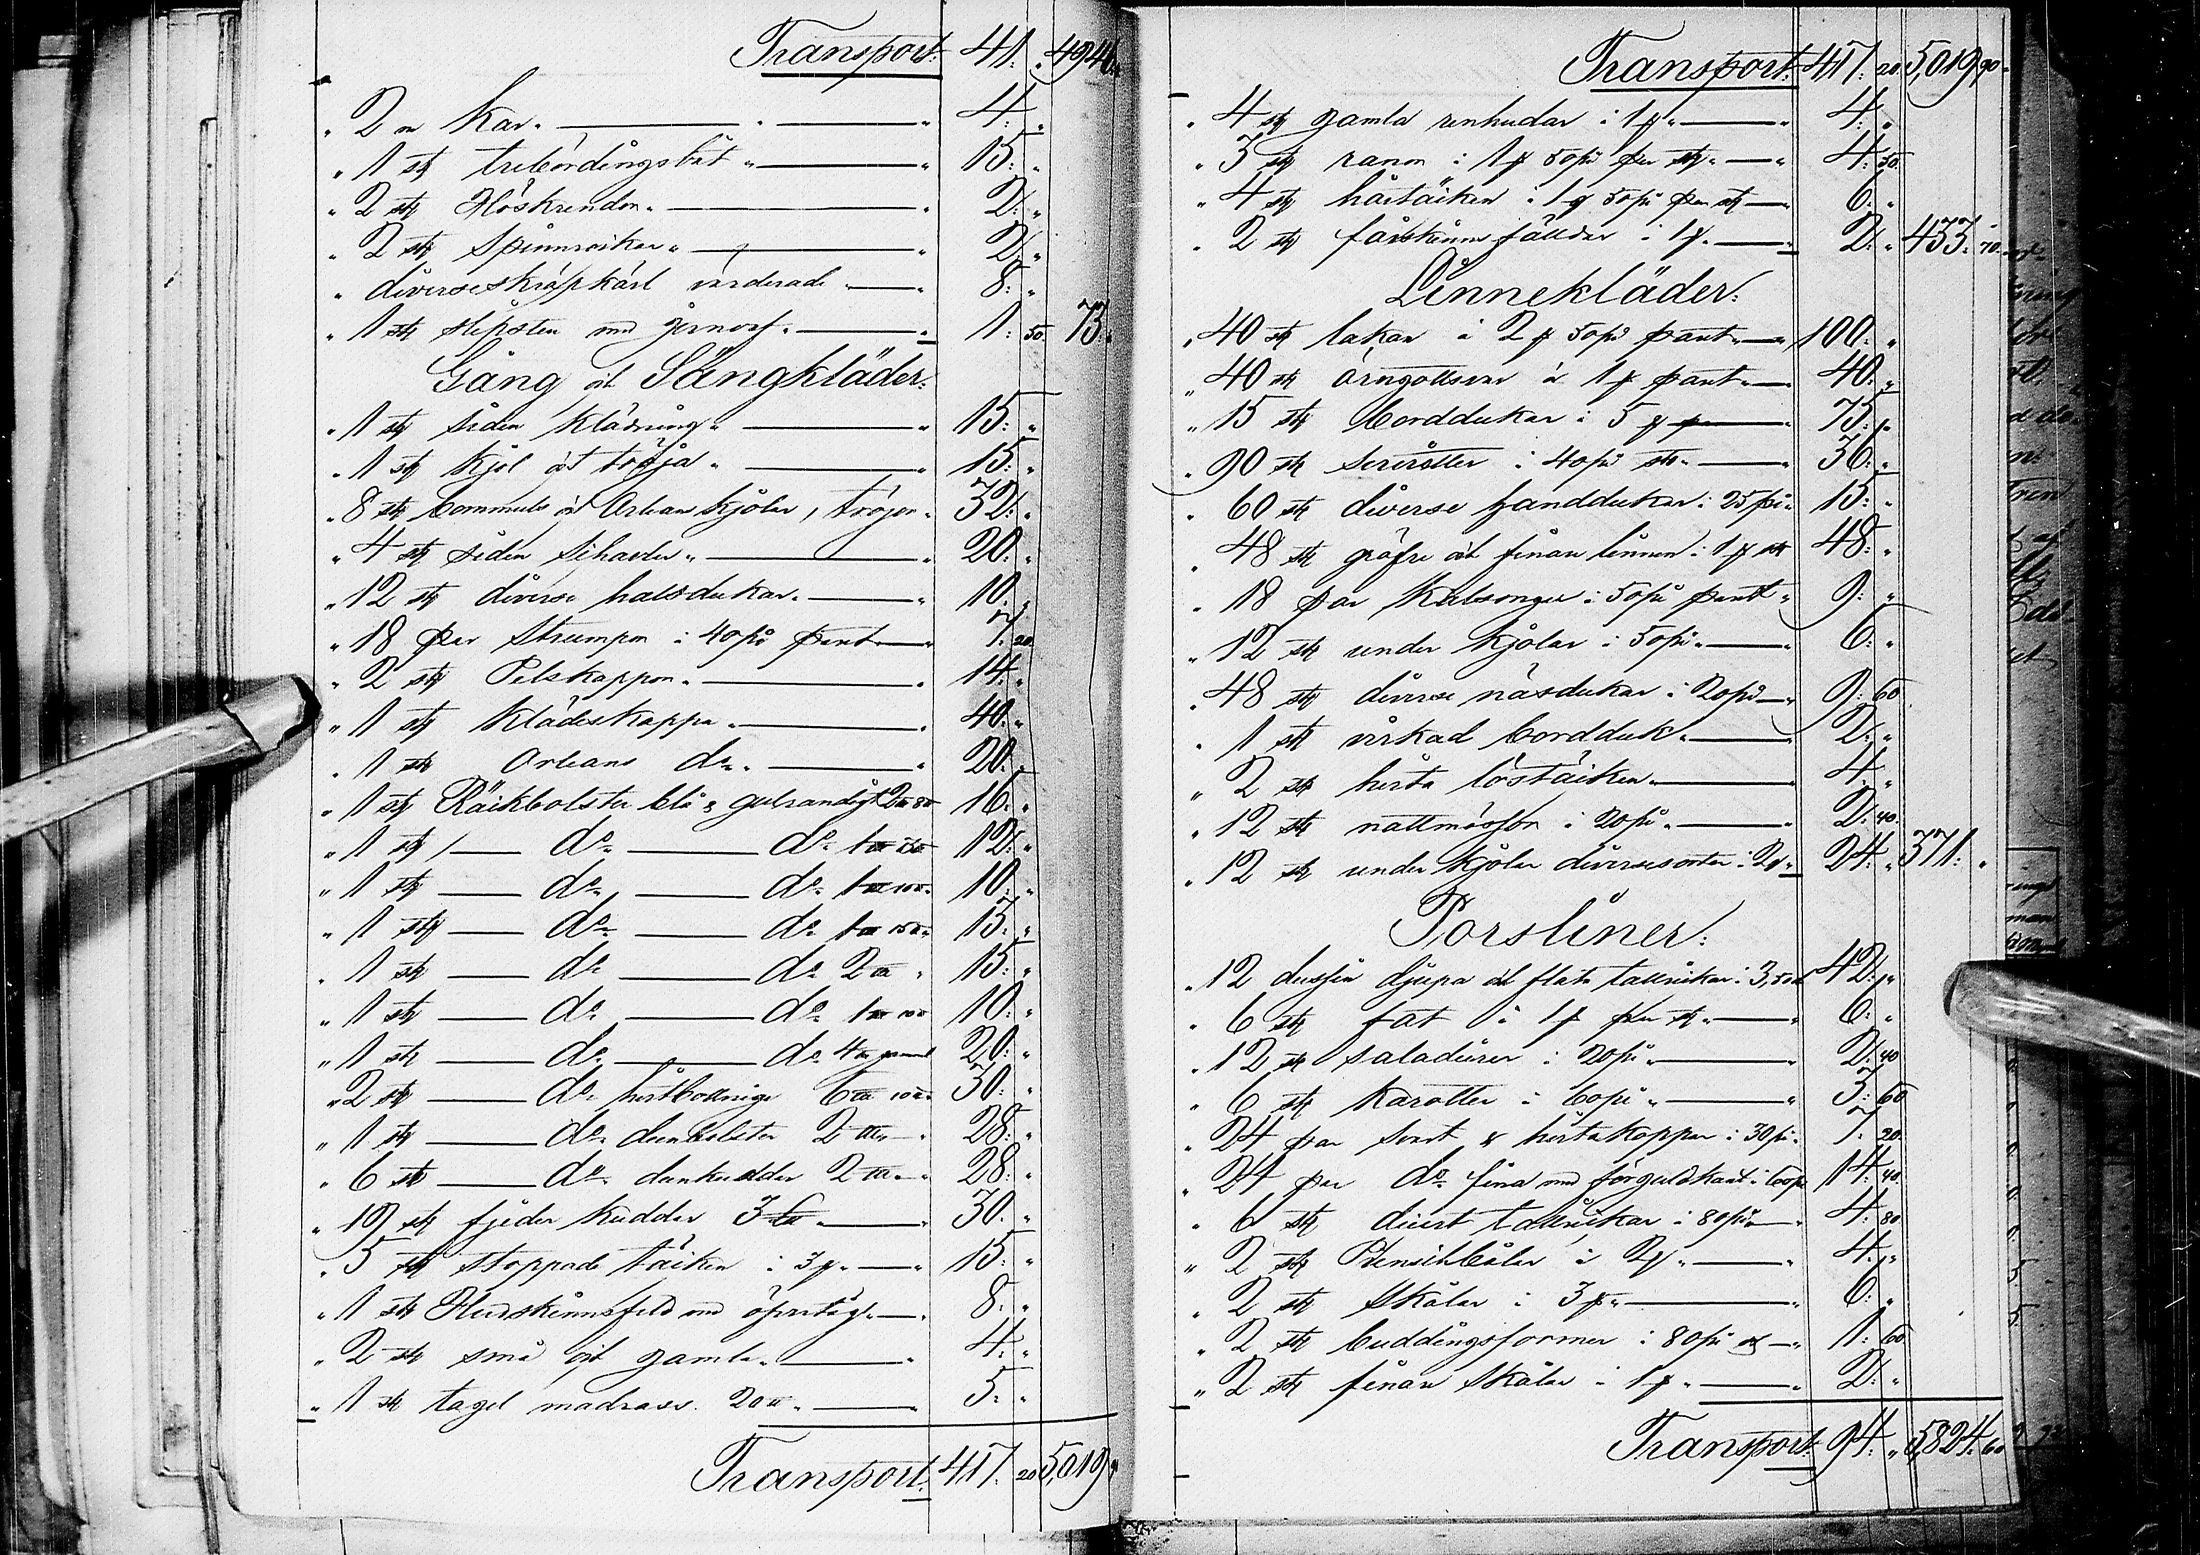 Transport: 41: „ 4946
„ 2 „ Kar „ 4: „
„ 1 st tribördingsbåt „ 15: „
„ 2 st Höskrindor „ 2: „
„ 2 st Spinnrockar „ 2: „
„ diverse skräpkärl värderade 8: „
„ 1 st slipsten med jernvef „ 1: 50 73: „
Gång och Sängkläder:
„ 1 st siden klädning „ 15: „
„ 1 st kjol och tröja „ 15: „
„ 8 st bommuls och Orleans kjolar, tröjor „ 32: „
„ 4 st siden schavler „ 20: „
„ 12 st diverse halsdukar „ 10: „
„ 18 par Strumpor i 40 pi paret 7: 20
„ 2 st Pelskappor „ 14: „
„ 1 st klädeskappa „ 40: „
„ 1 st Orleans do „ 20: „
„ 1 st Räckbolster blå & gulrandigt 16: „
„ 1 st do do 12: „
„ 1 st do do 10: „
„ 1 st do do 15: „
„ 1 st do do 15: „
„ 1 st do do 10: „
„ 1 st do do 20: „
„ 2 st do 30: „
„ 1 st do dunbolster 28: „
„ 6 st do dunkuddar 28: „
„ 19 st fjeder kuddar 30: „
„ 5 st stoppade täcken i 3 15: „
„ 1 st med öfvertåg 8: „
„ 2 st små och gamla „ 4: „
„ 1 st tagel madrass. 5: „
Transport: 417: 20 5,019
Transport: 417: 20 5,019 90
„ 4 st gamla renhudar i 1 4: „
„ 3 st ranor i 1 50 pi per st 4: 50
„ 4 st hårtäcken i 1 50 pi per st 6: „
„ 2 st fårskinns fälldar i 1 2: „ 433: 70
Linnekläder:
„ 40 st lakan à 2 50 pi 100: „
„ 40 st örngottsvar à 1 40: „
„ 15 st borddukar i 5 75: „
„ 90 st servietter i 40 pi 36: „
„ 60 st diverse handdukar i 25 pi 15: „
„ 48 st gröfre och finare linnen i 1 48: „
„ 18 par Kalsonger i 50 pi paret 9: „
„ 12 st under kjolar i 50 pi 6: „
„ 48 st diverse näsdukar i 20 pi 9: 60
„ 1 st virkad bordduk „ 2: „
„ 2 st hvita löstäcken „ 4: „
„ 12 st nattmössor i 20 pi „ 2: 40
„ 12 st under kjolar diverse sorter i 2 24: „ 371: „
Porsliner:
„ 12 dussin djupa och flata tallrickar i 3,50 42: „
„ 6 st fat i 1 per st 6: „
„ 12 st saladiärer i 20 pi 2: 40
„ 6 st Karotter i 60 pi 3: 60
„ 24 par svart & hvita koppar i 30 pi 7: 20
„ 24 par do fina med förguld kant i 60 pi 14: 40
„ 6 st tallrickar i 80 pi 4: 80
„ 2 st bålar à 2 4: „
„ 2 st Skålar i 3 6: „
„ 2 st buddingsformer i 80 pi 1: 60
„ 2 st finare skålar i 1 2: „
Transport: 94: „ 5,824: 60